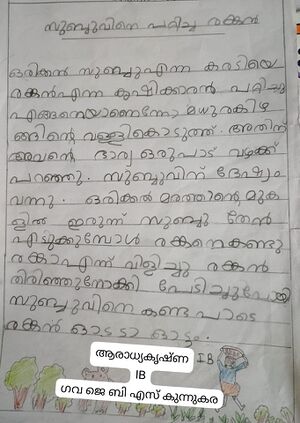 സുബ്ബുവിനെ പറ്റിച്ച രങ്കൻ
ഒരിക്കൽ സുബ്ബുഎന്ന കരടിയെ
രങ്കൻഎന്ന കൃഷിക്കാരൻ പറ്റിച്ചു
എങ്ങനെയാണെന്നോ മധുരകിഴ
ങ്ങിന്റെ വള്ളികൊടുത്ത്. അതിന്
അവന്റെ ഭാര്യ ഒരുപാട് വഴക്ക്
പറഞ്ഞു. സുബ്ബുവിന് ദേഷ്യം
വന്നു. ഒരിക്കൽ മരത്തിന്റെ മുക
ളിൽ ഇരുന്ന് സുബ്ബു തേൻ
എടുക്കുമ്പോൾ രങ്കനെകണ്ടു
രങ്കാഎന്ന് വിളിച്ചു രങ്കൻ
തിരിഞ്ഞുനോക്കി പേടിച്ചുപോയി
സുബ്ബുവിനെ കണ്ട പാടെ
രങ്കൻ ഓടടാ ഓട്ടം.
ആരാധ്യകൃഷ്ണ
IB
IB
ഗവ ജെ ബി എസ് കുന്നുകര